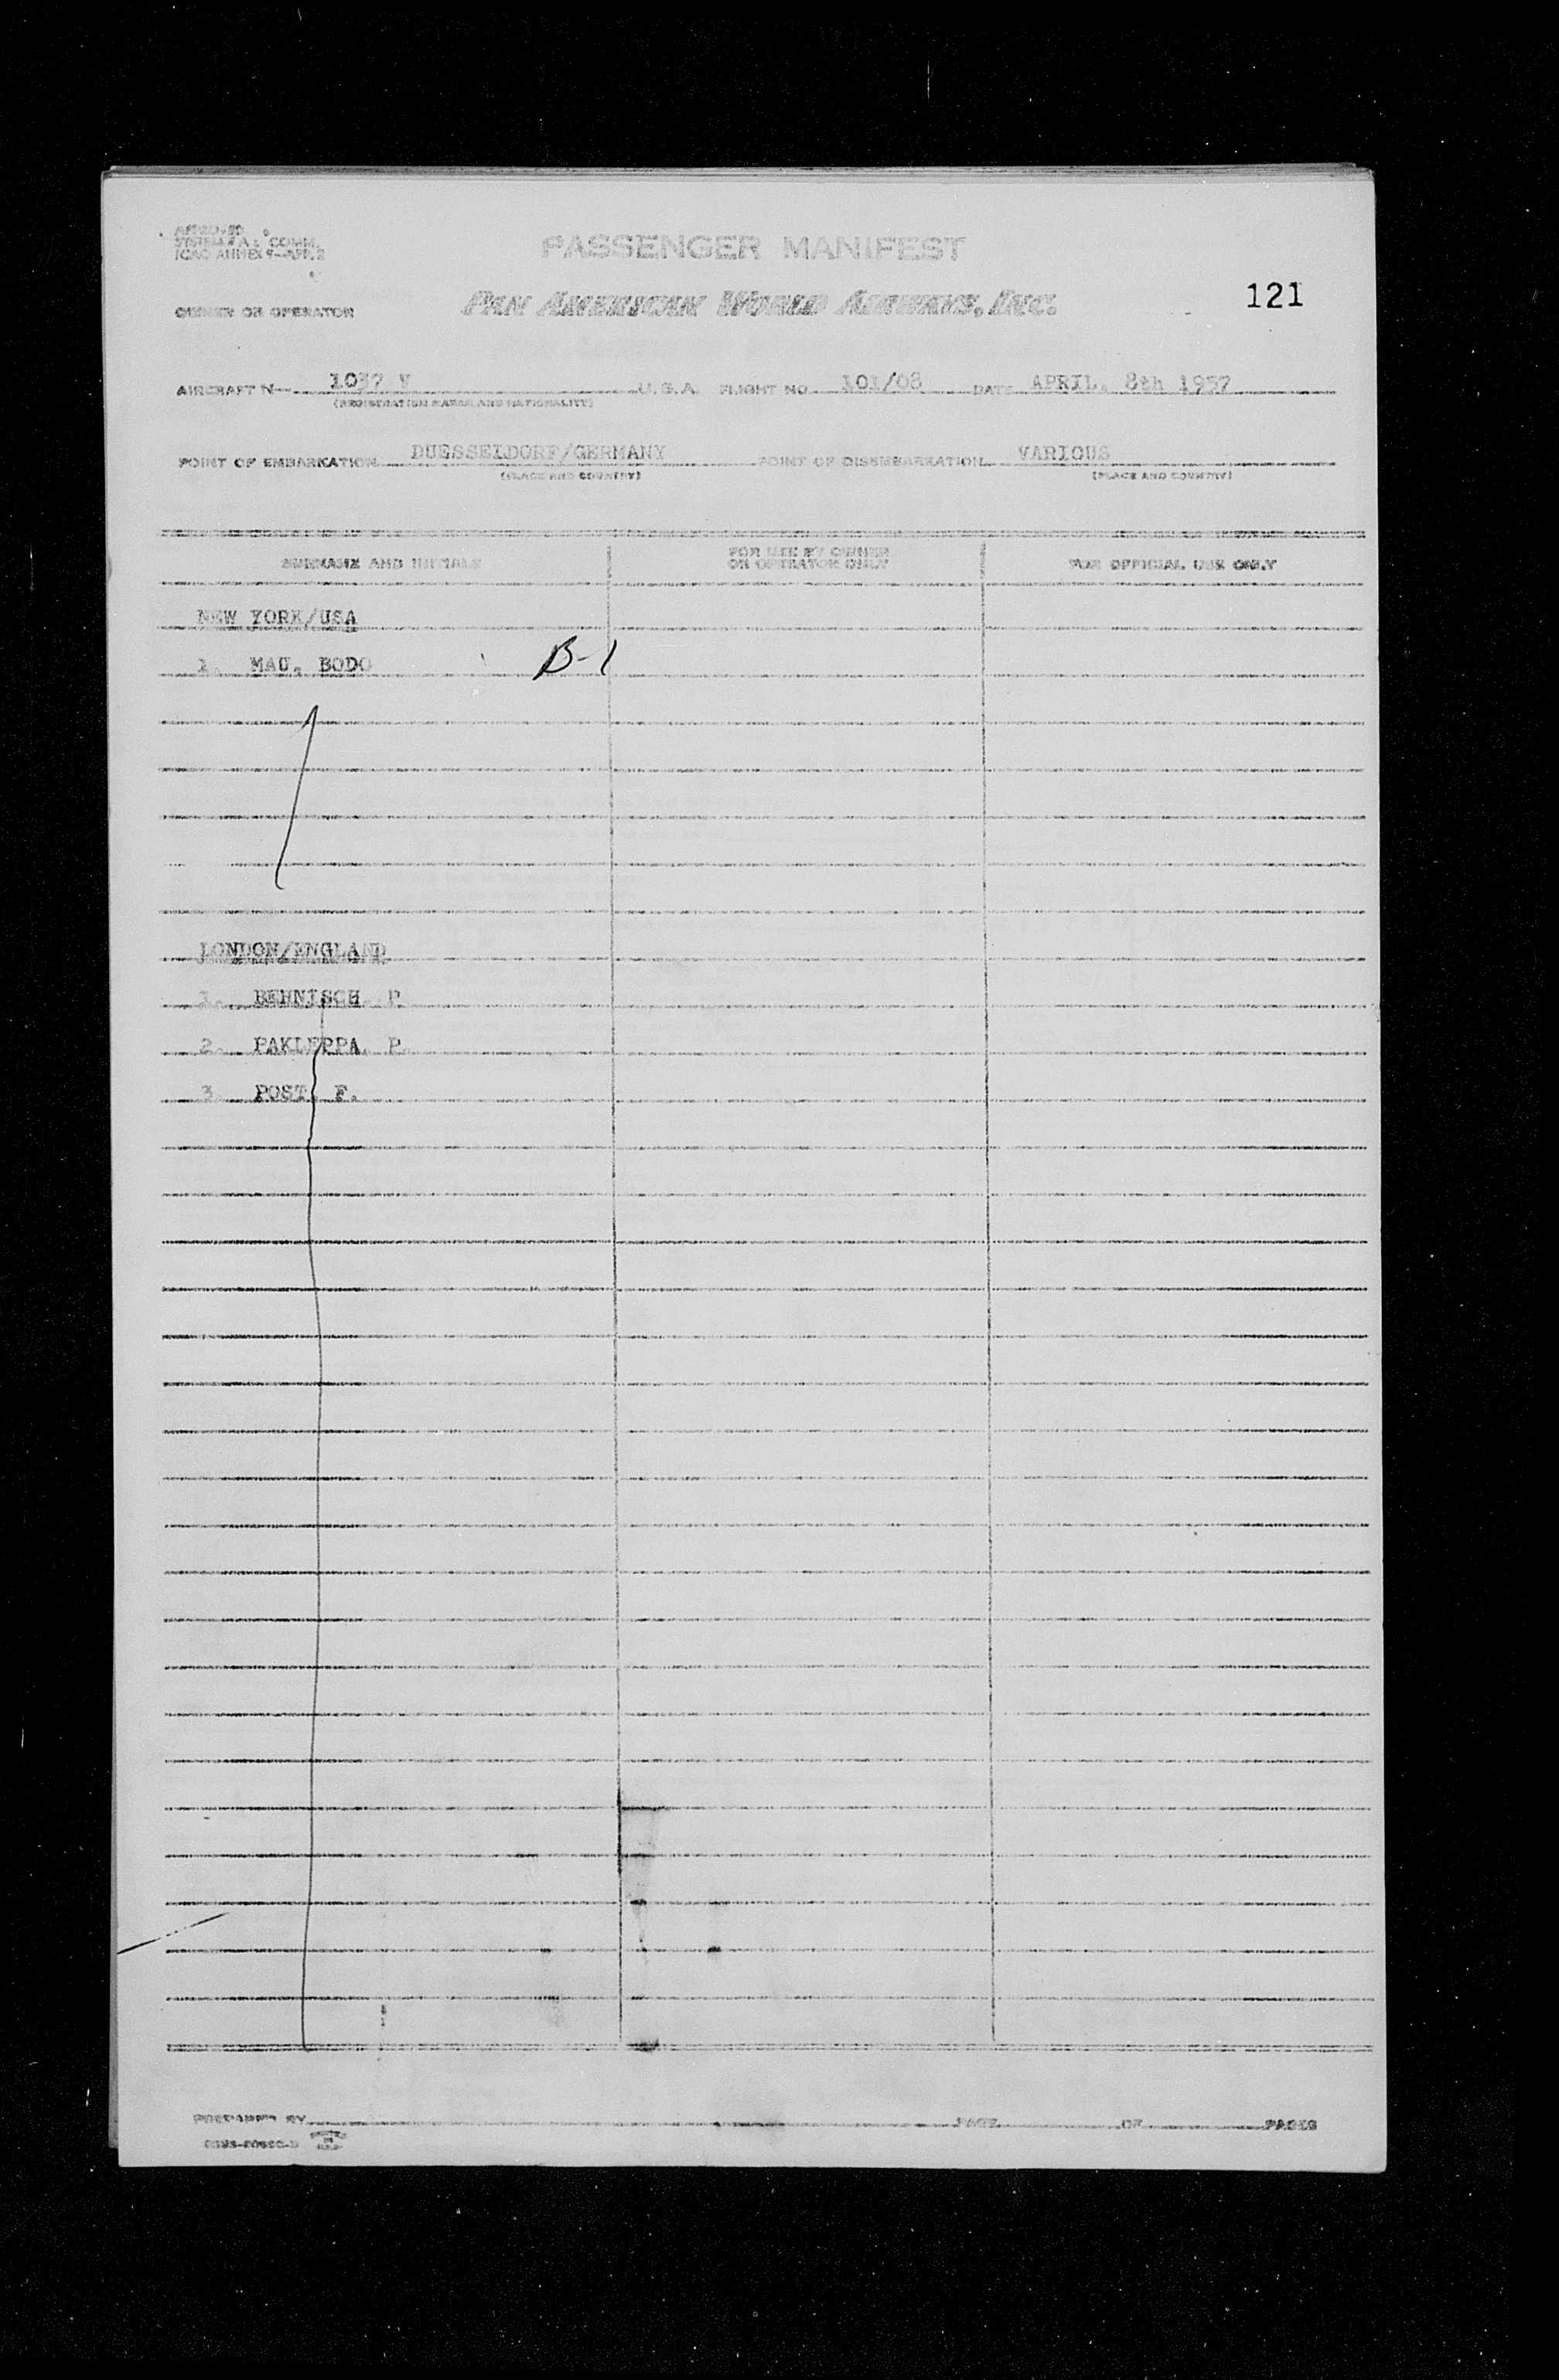 PASSENGER MANIFEST
ICAO ANNEX 9-APP. 2
121
OWNER OR OPERATOR PAN AMERICAN WORLD AIRWAYS, INC.
AIRCRAFT N 1037 V U.S.A. FLIGHT NO. 101/08 DATE APRIL, 8th 1957
(REGISTRATION MARKS AND NATIONALITY)
POINT OF EMBARKATION DUESSELDORF/GERMANY POINT OF DISEMBARKATION VARIOUS
(PLACE AND COUNTRY) (PLACE AND COUNTRY)
SURNAME AND INITIALS FOR USE BY OWNER OR OPERATOR ONLY FOR OFFICIAL USE ONLY
NEW YORK/USA
1. MAU, BODO B-1
LONDON/ENGLAND
1. BEHNISCH P.
2. PAKLEPPA, P.
3. POST, F.
PREPARED BY PAGE OF PAGES